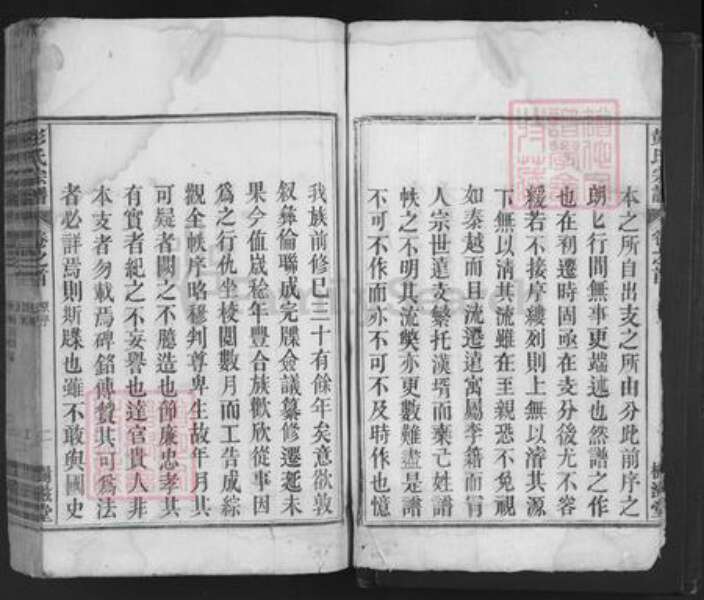 本之所自出支之所由分此前序之
朗匕行間無事更端述也然譜之作
也在初遷時固亟在支分後尤不容
緩若不接序縷列則上無以濬其源
下無以清其流雖在至親恐不免視
如秦越而且流遷遠寓屬李籍而
人宗世遠支繁托漢壻而棄己姓譜
帙之不明其流弊亦更數難盡是譜
不可不作而亦不可不及時作也憶
我族前修已三十有餘年矣意欲敦
叙彝倫聯成完牒僉議纂修遷延未
果今值歲稔年豐合族歡欣從事因
爲之行仇坐校閱數月而工告成綜
觀全帙序略穆判尊卑生故年月其
可疑者闕之不臆造也節廉忠孝其
有實者紀之不妄譽也達官貴人非
本支者勿載焉碑銘傳贊其可爲法
者必詳焉則斯牒也雖不敢與國史
彭氏宗譜
卷之首